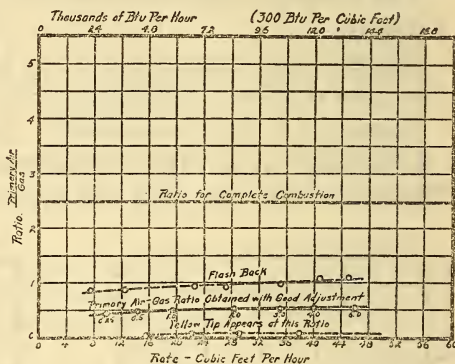 Thousands of Btu Per Hour (300 Btu Per Cubic Foot)
0 2.4 4.8 7.2 9.6 12.0
5
4
Ratio, Primary Air
Gas
3
2
Ratio for Complete Combustion
Flash Back
1
Primary Air-Gas Ratio Obtained with Good Adjustment
Yellow Tip Appears at this Ratio
0
0 4 8 12 16 20 24 28 32 36 40 44 48 52 56 60
Rate - Cubic Feet Per Hour